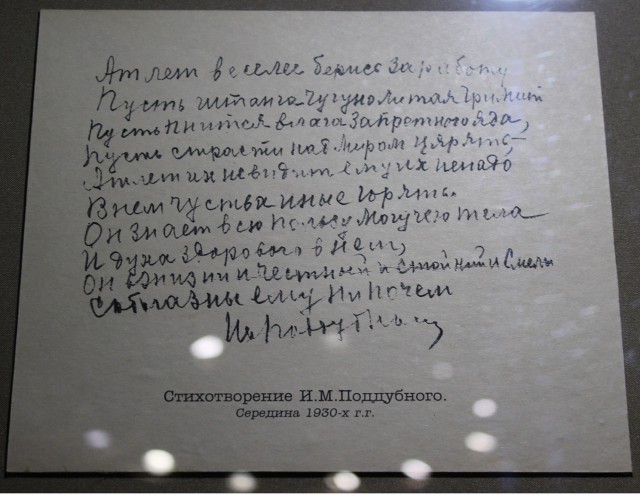 Атлет веселее берись за работу
Пусть штанга чугунолитая гримит
Пусть пнится влага запретного яда,
Пусть страсти над миром царять—
Атлет их невидит ему их ненадо
В нем чуства иные горять.
Он знает всю пользу могучего тела
И духа здорового в нем,
Он в жизни и честный и стойкий и смелы
Соблазны ему ни по чем
Ив Поддубный
Стихотворение И.М.Поддубного.
Середина 1930-х г.г.